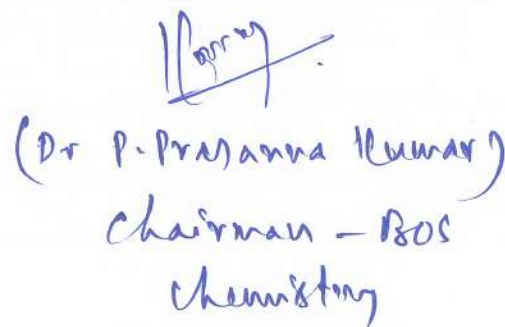 (Dr P. Prasanna Kumar)
Chairman - BOS
Chemistry